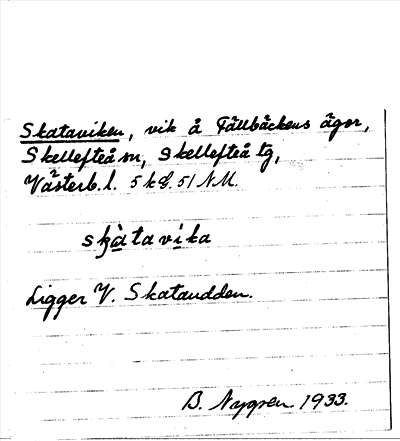 Skataviken, vik å Fällbäckens ägor,
Skellefteå sn, Skellefteå tg,
Västerb. l. 5 k 8. 51 NM.
skàtavika
Ligger V. Skataudden.
B. Nygren 1933.